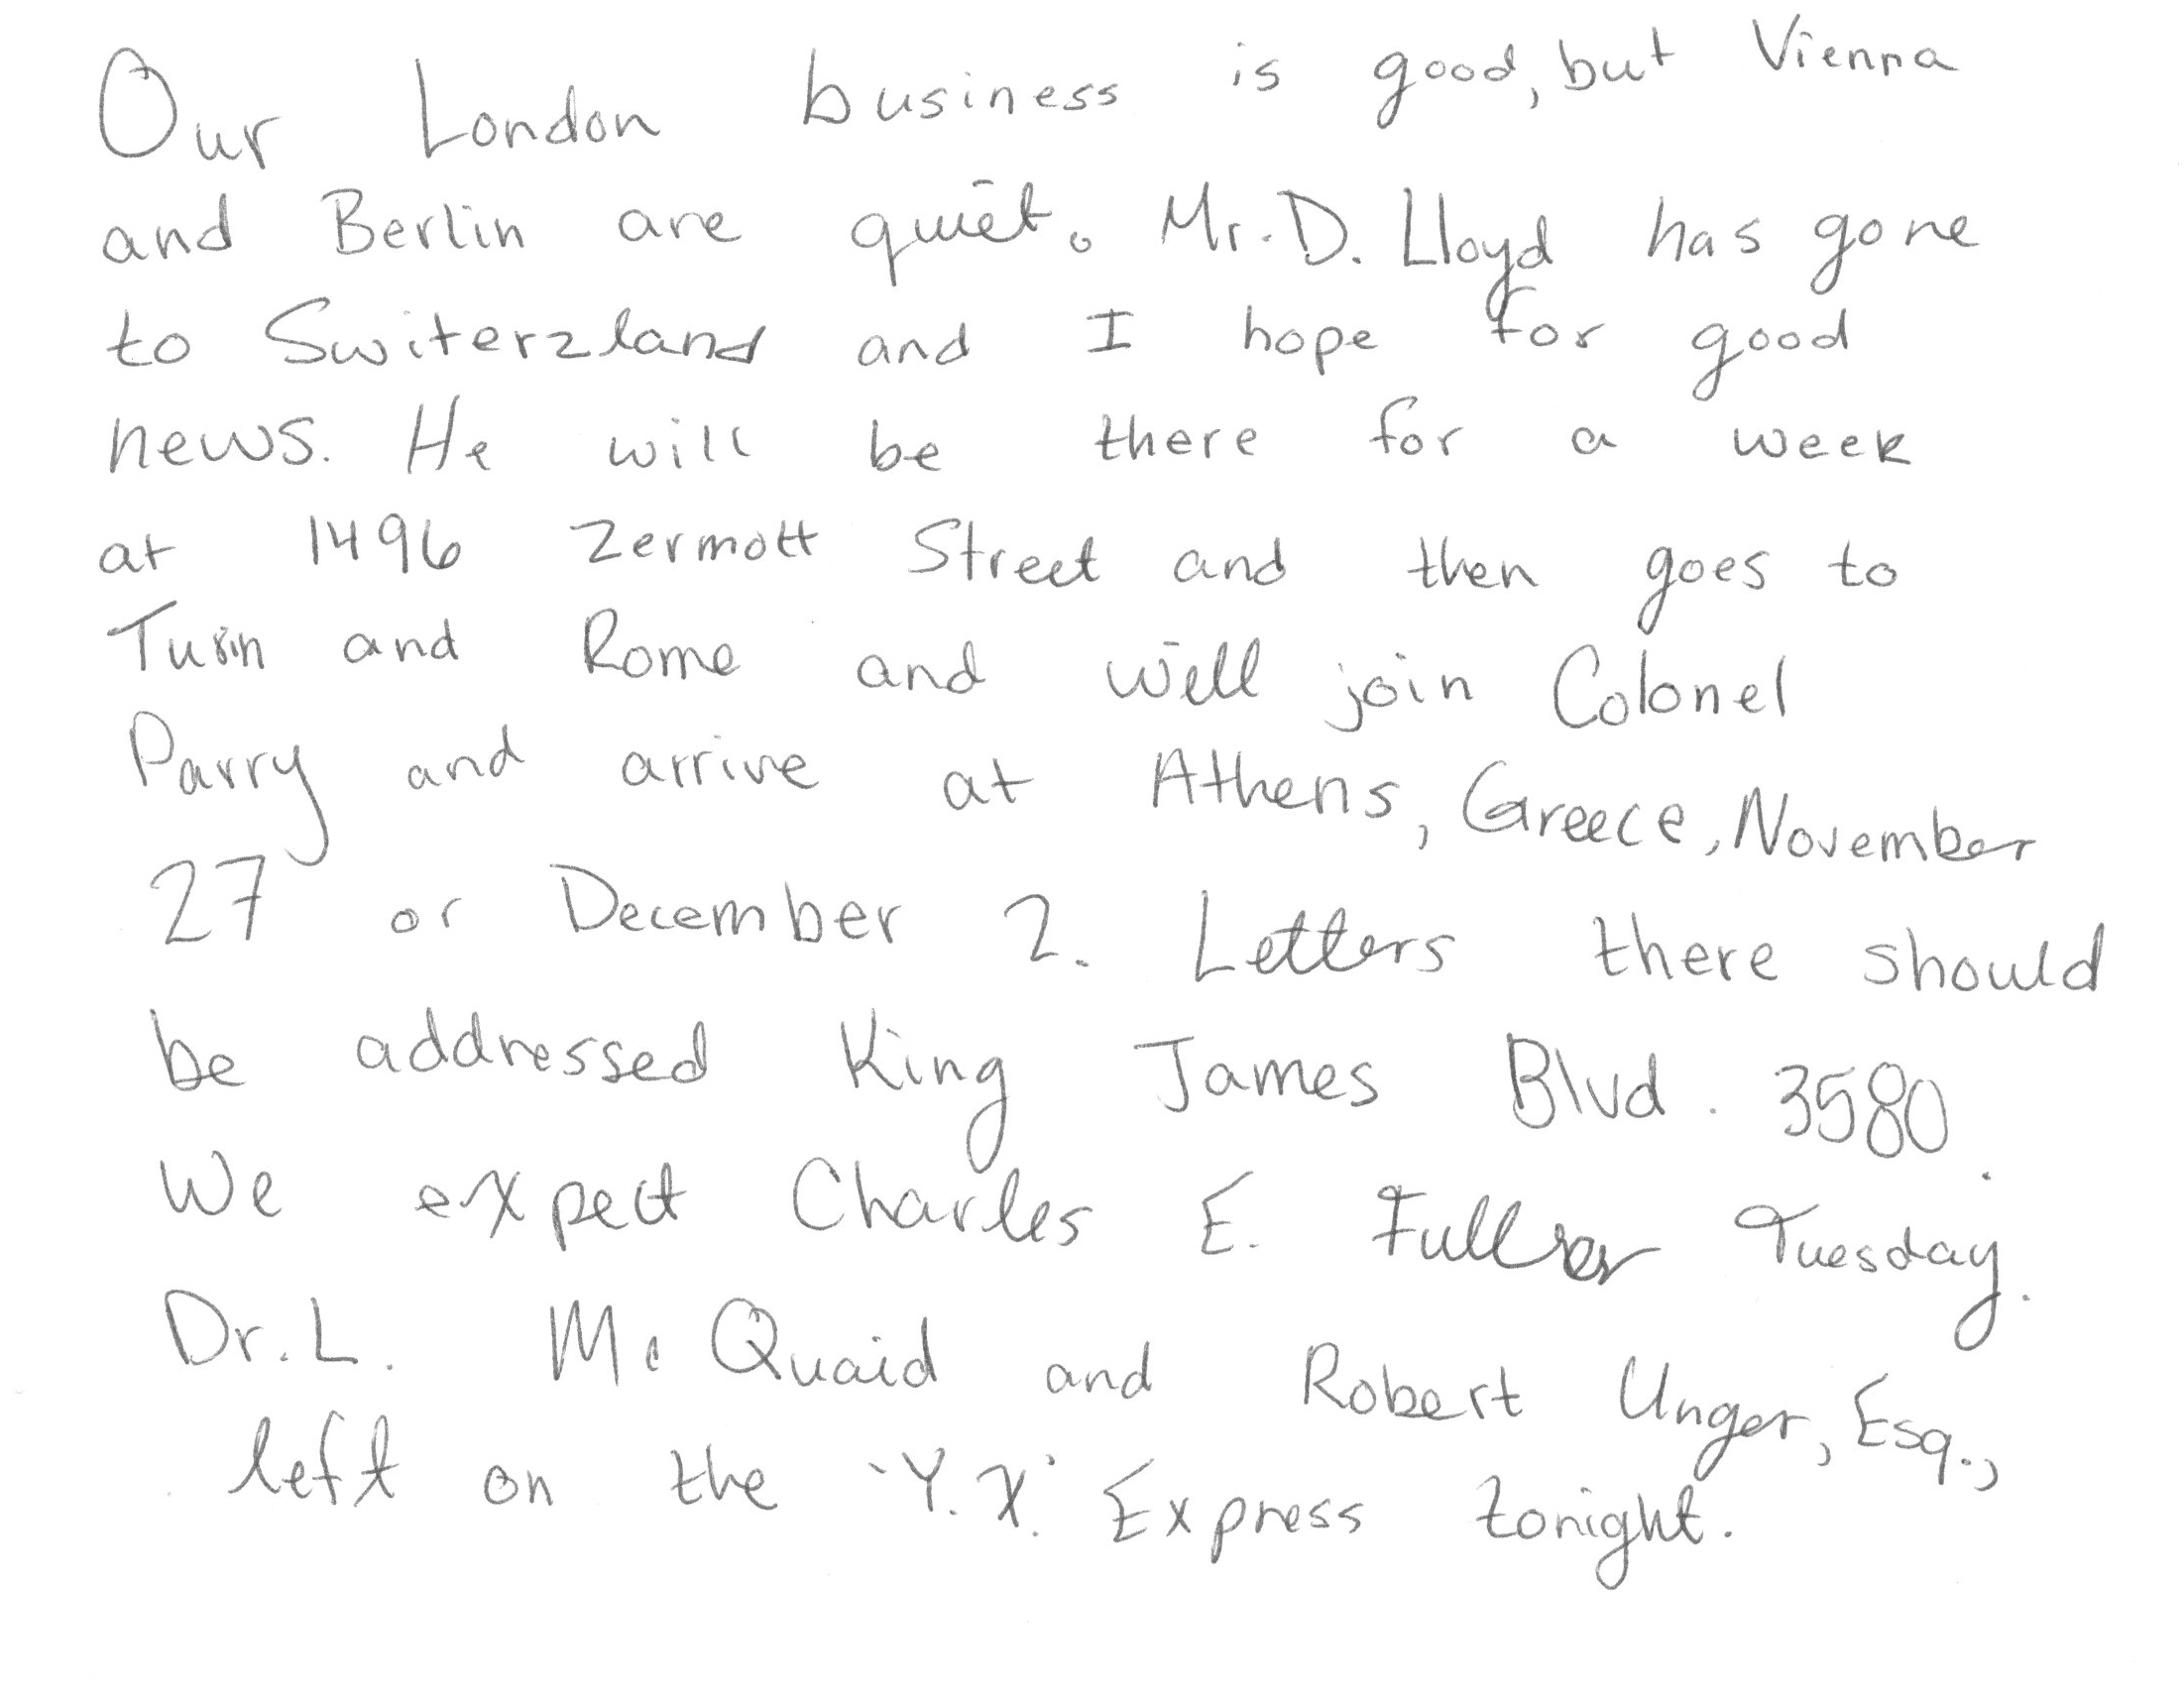 Our London business is good, but Vienna
and Berlin are quiet. Mr. D. Lloyd has gone
to Switerzland and I hope for good
news. He will be there for a week
at 1496 Zermott Street and then goes to
Turin and Rome and will join Colonel
Parry and arrive at Athens, Greece, November
27 or December 2. Letters there should
be addressed King James Blvd. 3580.
We expect Charles E. Fuller Tuesday.
Dr. L. Mc Quaid and Robert Unger, Esq.,
left on the 'Y.X.' Express tonight.